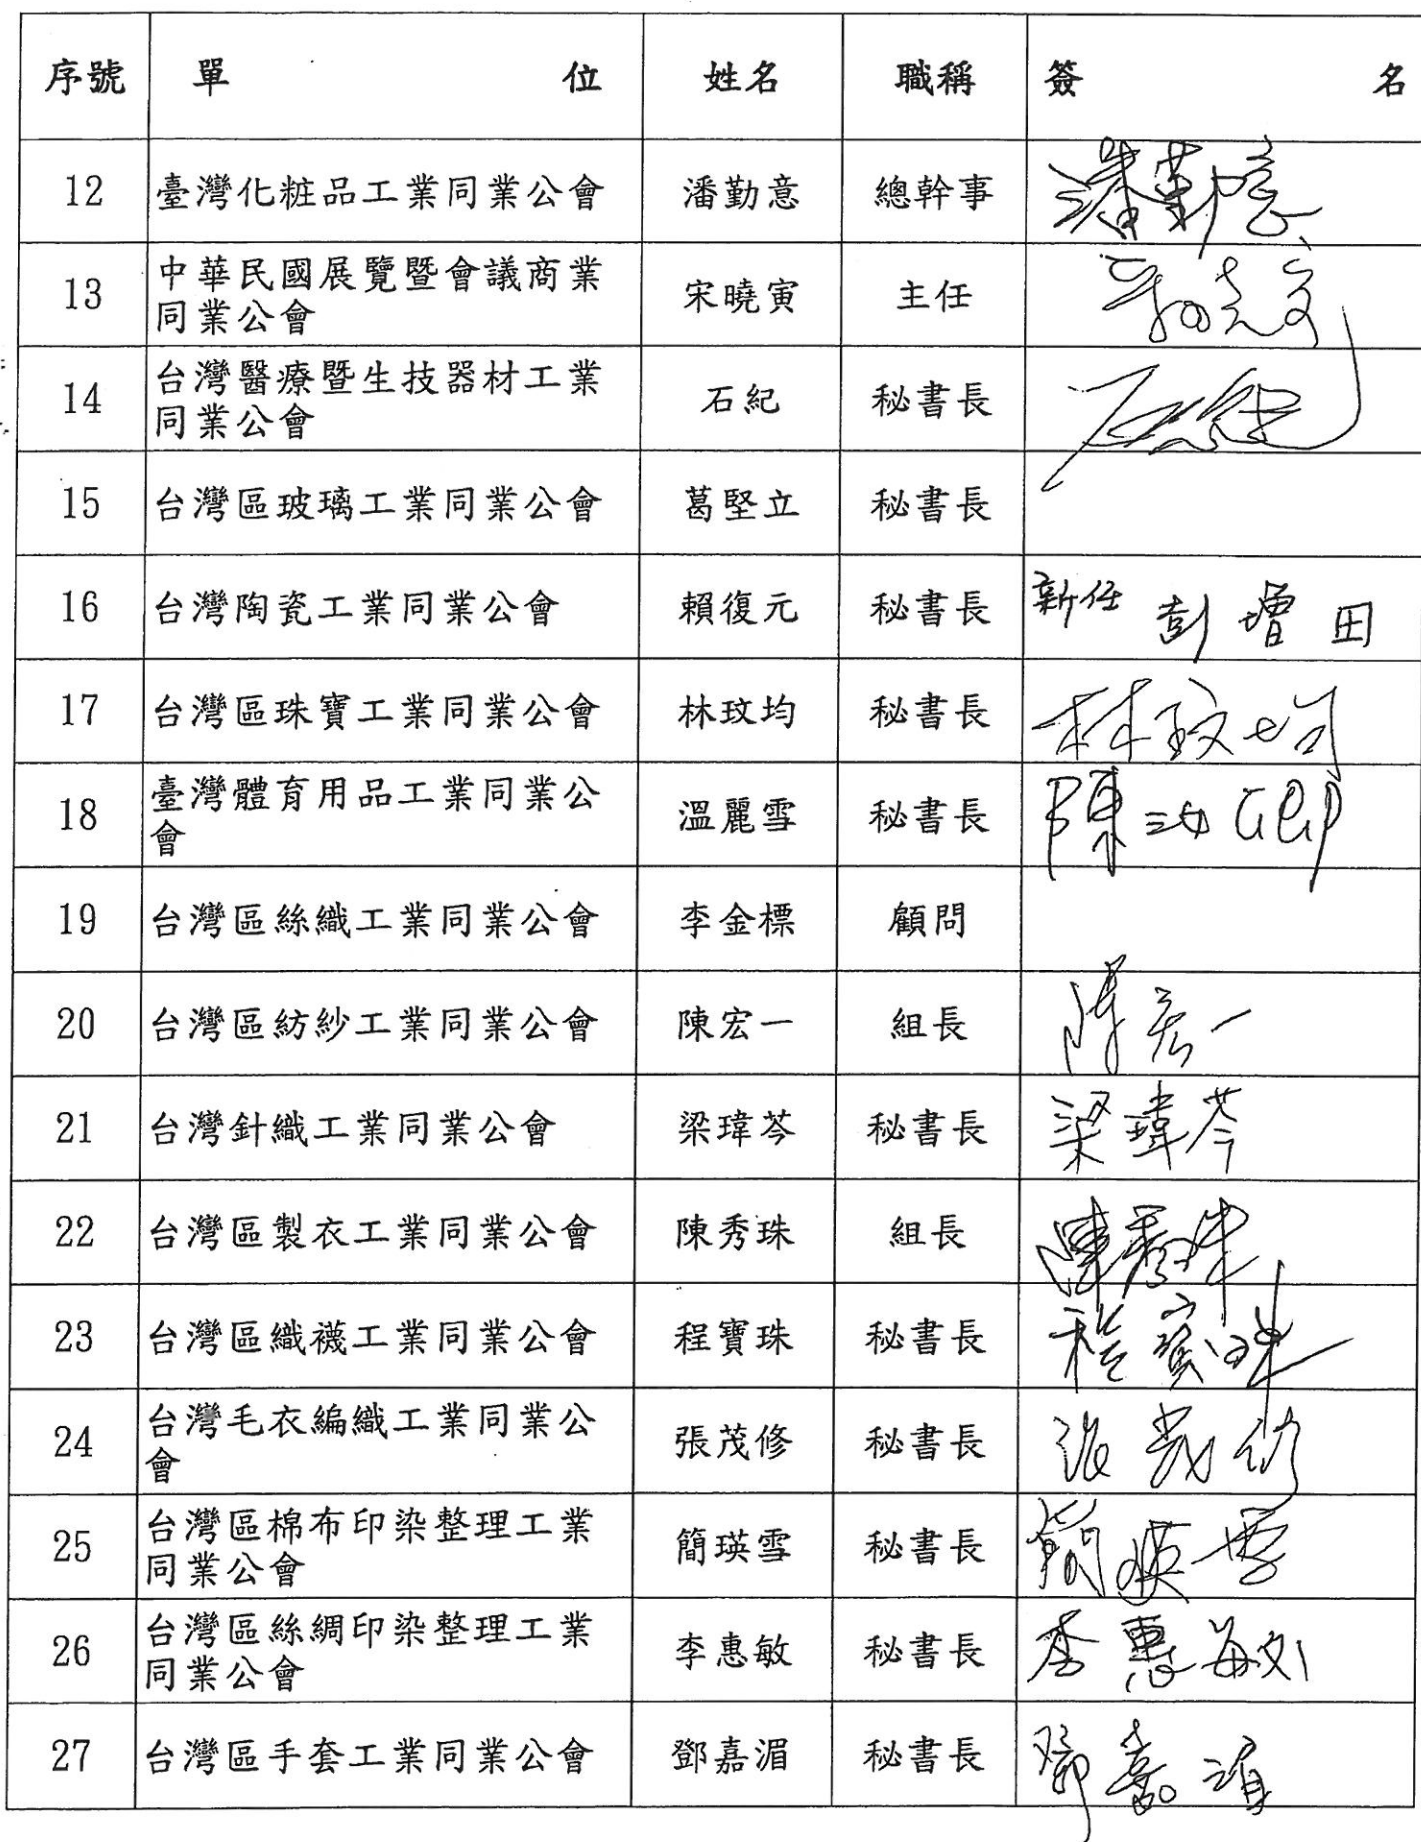 序號 單位 姓名 職稱 簽名
12 臺灣化粧品工業同業公會 潘勤意 總幹事 潘勤意
13 中華民國展覽暨會議商業
同業公會 宋曉寅 主任
14 台灣醫療暨生技器材工業
同業公會 石紀 秘書長 石紀
15 台灣區玻璃工業同業公會 葛堅立 秘書長
16 台灣陶瓷工業同業公會 賴復元 秘書長 新任 彭增田
17 台灣區珠寶工業同業公會 林玟均 秘書長 林玟均
18 臺灣體育用品工業同業公
會 溫麗雪 秘書長 陳
19 台灣區絲織工業同業公會 李金標 顧問
20 台灣區紡紗工業同業公會 陳宏一 組長 陳宏一
21 台灣針織工業同業公會 梁瑋芩 秘書長 梁瑋芩
22 台灣區製衣工業同業公會 陳秀珠 組長 陳秀珠
23 台灣區織襪工業同業公會 程寶珠 秘書長 程寶珠
24 台灣毛衣編織工業同業公
會 張茂修 秘書長 張茂修
25 台灣區棉布印染整理工業
同業公會 簡瑛雪 秘書長 簡瑛雪
26 台灣區絲綢印染整理工業
同業公會 李惠敏 秘書長 李惠敏
27 台灣區手套工業同業公會 鄧嘉湄 秘書長 鄧嘉湄